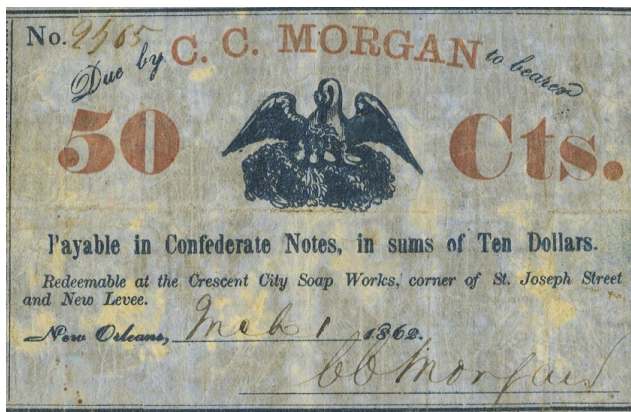 No. 2565
Due by C. C. MORGAN to bearer
50 Cts.
Payable in Confederate Notes, in sums of Ten Dollars.
Redeemable at the Crescent City Soap Works, corner of St. Joseph Street
and New Levee.
New Orleans, Mch 1 1862.
CC Morgan